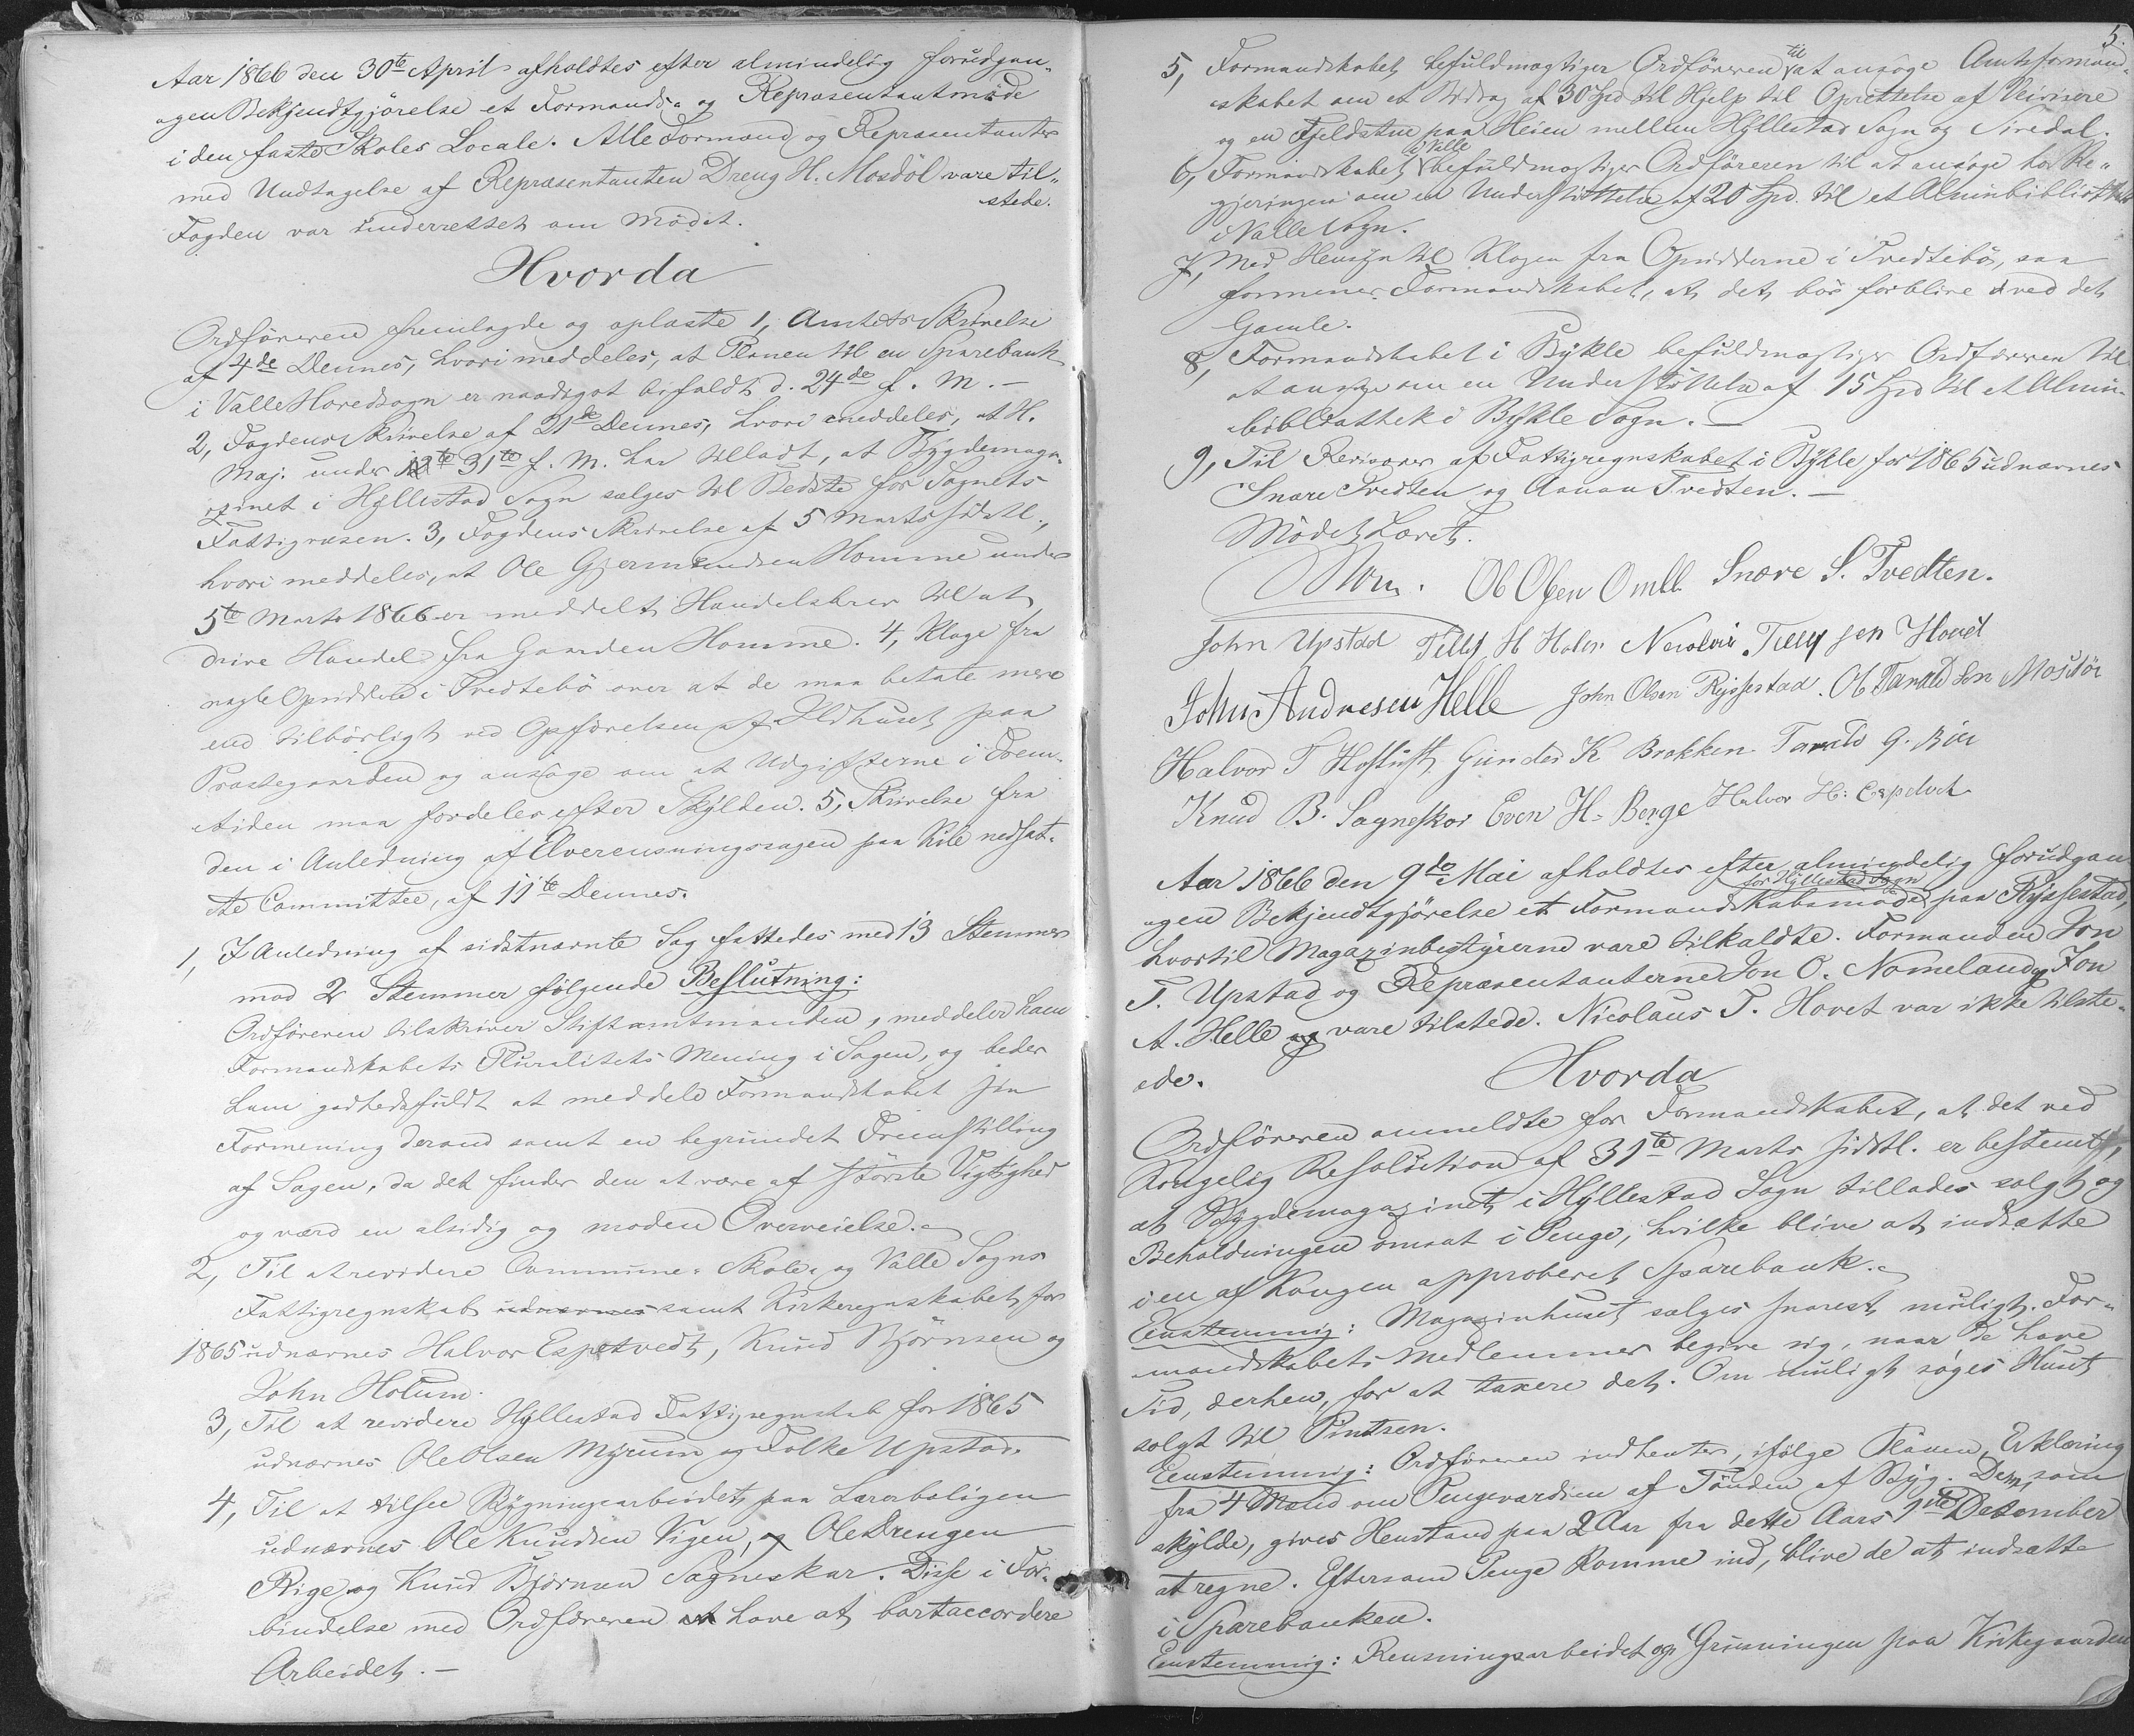 Aar 1866 den 30te April afholdtes efter almindelig forudgan-
agen Bekjendtgjörelse et Formands- og Repræsentantmöde
i den faste Skoles Locale. Alle Formænd og Repræsentanter
med Undtagelse af Repræsentanten Dreng H. Mosdöl vare til-
stede.
Fogden var underrettet om Mödet.
Hvorda
Ordföreren fremlagde og oplæste 1, Amtets Skrivelse
af 4de Dennes, hvori meddeles, at Planen til en Sparebank
i Valle Hovedsogn er naadigst bifaldt d. 24de f. M. -
2, Fogdens Skrivelse af 21de Dennes, hvori meddeles, at H.
Maj. under 31te f. M. har tilladt, at Bygdemaga-
zinet i Hyllestad Sogn sælges til Bedste for Sognets
Fattigvæsen. 3, Fogdens Skrivelse af 5 Marts sidstl.,
hvori meddeles, at Ole Gjermundsen Homme under
5te Marts 1866 er meddelt Handelsbrev til at
drive Handel fra Gaarden Homme. 4, Klage fra
nogle Opsiddere i Tvedtebö over at de maa betale mere
end tilbörligt ved Opförelsen af Ildhuset paa
Præstegaarden og ansöge om at Udgifterne i Frem-
tiden maa fordeles efter Skylden. 5, Skrivelse fra
den i Anledning af Elverensningssagen paa Kile nedsat-
te Committee, af 11te Dennes.
1, I Anledning af sidstnævnte Sag fattedes med 13 Stemmer
mod 2 Stemmer fölgende Beslutning:
Ordföreren tilskriver Stiftamtmanden, meddeler ham
Formandskabets Pluralitets Mening i Sagen, og beder
ham godhedsfuldt at meddele Formandskabet sin
Formening derom samt en begrundet Fremstilling
af Sagen, da det finder den at være af störste Vigtighed
og værd en alsidig og moden Overveielse.
2, Til at revidere Commune- Skole- og Valle Sogns
Fattigregnskab udnævnes samt Kirkeregnskabet for
1865 udnævnes Halvor Espetvedt, Knud Björnsen og
John Holum.
3, Til at revidere Hyllestad Fattigregnskab for 1865
udnævnes Ole Olsen Myrum og Folke Upstad.
4, Til at tilsee Bygningsarbeidet paa Lærerboligen
udnævnes Ole Knudsen Vigen, og Ole Drengen
Rige og Knud Björnsen Sagneskar. Disse i For-
bindelse med Ordföreren have at bortaccordere
Arbeidet. -
5.
5, Formandskabet befuldmægtiger Ordföreren til at ansöge Amtsformand-
skabet om et Bidrag af 30 Spd til Hjelp til Oprettelse af Veivisere
og en Fjeldstue paa Heien mellem Hyllestad Sogn og Siredal.
6, Formandskabet i Valle befuldmægtiger Ordföreren til at ansöge hos Re-
gjeringen om en Understöttelse af 20 Spd. til et Almuebibliothek
i Valle Sogn.
7, Med Hensyn til Klagen fra Opsidderne i Tvedtebö, saa
formener Formandskabet, at det bör forblive ved det
Gamle.
8, Formandskabet i Bykle befuldmægtiger Ordföreren til
at ansöge om en Understöttelse af 15 Spd til et Almue-
bibliothek i Bykle Sogn. -
9, Til Revisorer af Fattigregnskabet i Bykle for 1865 udnævnes
Snare Tvedten og Aanon Tvedten. -
Mödet hævet.
Ol Olsen Snare S. Tvedten.
John Upstad H Holen Tellefsen Hovet
John Andresen Helle John Olsen Rysstad. Ol Tarald sen Mosdöl
Halvor T Gunder K Brokken. Tarald G. Bö
Knud B. Sagneskar Even H. Berge Halvor H: Espetvedt
Aar 1866 den 9de Mai afholdtes efter almindelig forudgan-
for Hyllestad Sogn
agen Bekjendtgjörelse et Formandskabsmöde paa Rysstad,
hvortil Magazinbestyrerne vare tilkaldte. Formanden Jon
T. Upstad og Repræsentanterne Jon O. Nomeland og Jon
A. Helle vare tilstede. Nicolaus T. Hovet var ikke tilste-
de.
Hvorda
Ordföreren anmeldte for Formandskabet, at det ved
Kongelig Resolution af 31te Marts sidstl. er bestemt,
at Bygdemagazinet i Hyllestad Sogn tillades solgt og
Beholdningen omsat i Penge, hvilke blive at indsætte
i en af Kongen approberet Sparebank.
Eenstemmig: Magazinhuset sælges snarest muligt. For-
mandskabets Medlemmer begive sig, naar de have
Tid, derhen, for at taxere det. Om muligt söges Huset
solgt til Pintsen.
Eenstemmig: Ordföreren indhenter, ifölge Planen, Erklæring
fra 4 Mænd om Pengeværdien af Tönden af Byg. Dem, som
skylde, gives Henstand paa 2 Aar fra dette Aars 1ste December
at regne. Eftersom Penge komme ind, blive de at indsætte
i Sparebanken.
Eenstemmig: Rensningsarbeidet og Grusningen paa Kirkegaarden